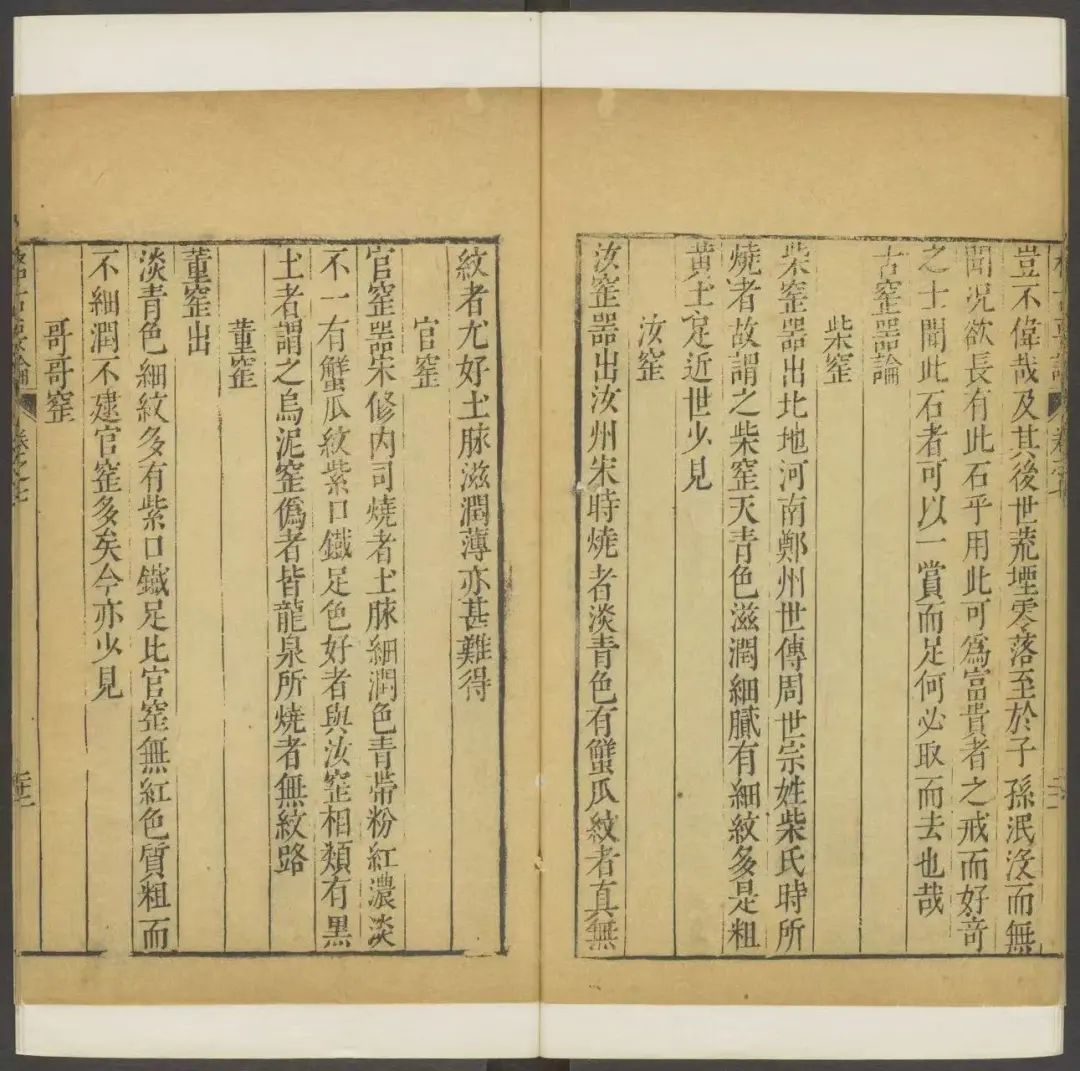 豈不偉哉及其後世荒堙零落至於子孫泯沒而無
聞况欲長有此石乎用此可為富貴者之戒而好竒
之士聞此石者可以一賞而足何必取而去也哉
古窑器論
柴窑
柴窑器出北地河南鄭州世傳周世宗姓柴氏時所
燒者故謂之柴窑天青色滋潤細膩有細紋多是粗
黄土足近世少見
汝窑
汝窑器出汝州宋時燒者淡青色有蟹爪紋者真無
紋者尤好土脉滋潤薄亦甚難得
官窑
官窑器宋修内司燒者土脉細潤色青帶粉紅濃淡
不一有蟹爪紋紫口鐵足色好者與汝窑相類有黑
土者謂之烏泥窑偽者皆龍泉所燒者無紋路
董窑
董窑出
淡青色細紋多有紫口鐵足比官窑無紅色質粗而
不細潤不逮官窑多矣今亦少見
哥哥窑